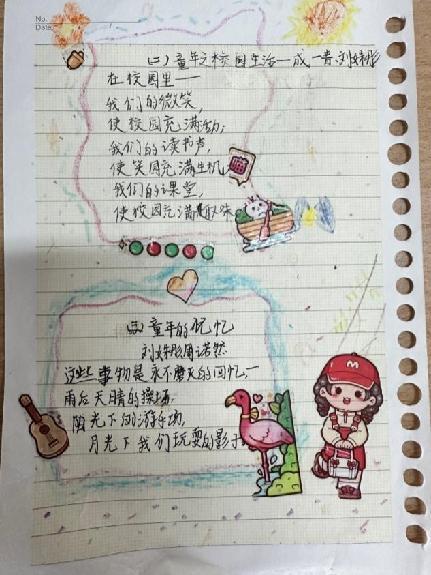 No.
Date
(二)童年之校园生活一成一青、刘婷彤
在校园里——
我们的微笑,
使校园充满动;
我们的读书声,
使笑园充满生机;
我们的课堂,
使校园充满趣味
童年的忆忆
刘婷彤周诺然
这些事物是永不磨灭的回忆.—
雨后天晴的操场,
阳光下的游乐场,
月光下我们玩耍的影子
M